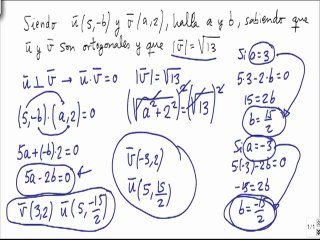 Siendo ū(5,-b) y v̄(a,2), halla a y b, sabiendo que
ū y v̄ son ortogonales y que |v̄|=√13
ū ⊥ v̄ → ū·v̄=0
(5,-b)·(a,2)=0
5a+(-b)·2=0
5a-2b=0
v̄(3,2) ū(5,-15/2)
|v̄|=√13
(√a²+2²)²=(√13)²
v̄(-3,2)
ū(5,15/2)
Si a=3
5·3-2·b=0
15=2b
b=15/2
Si a=-3
5(-3)-2b=0
-15=2b
b=-15/2
1/1